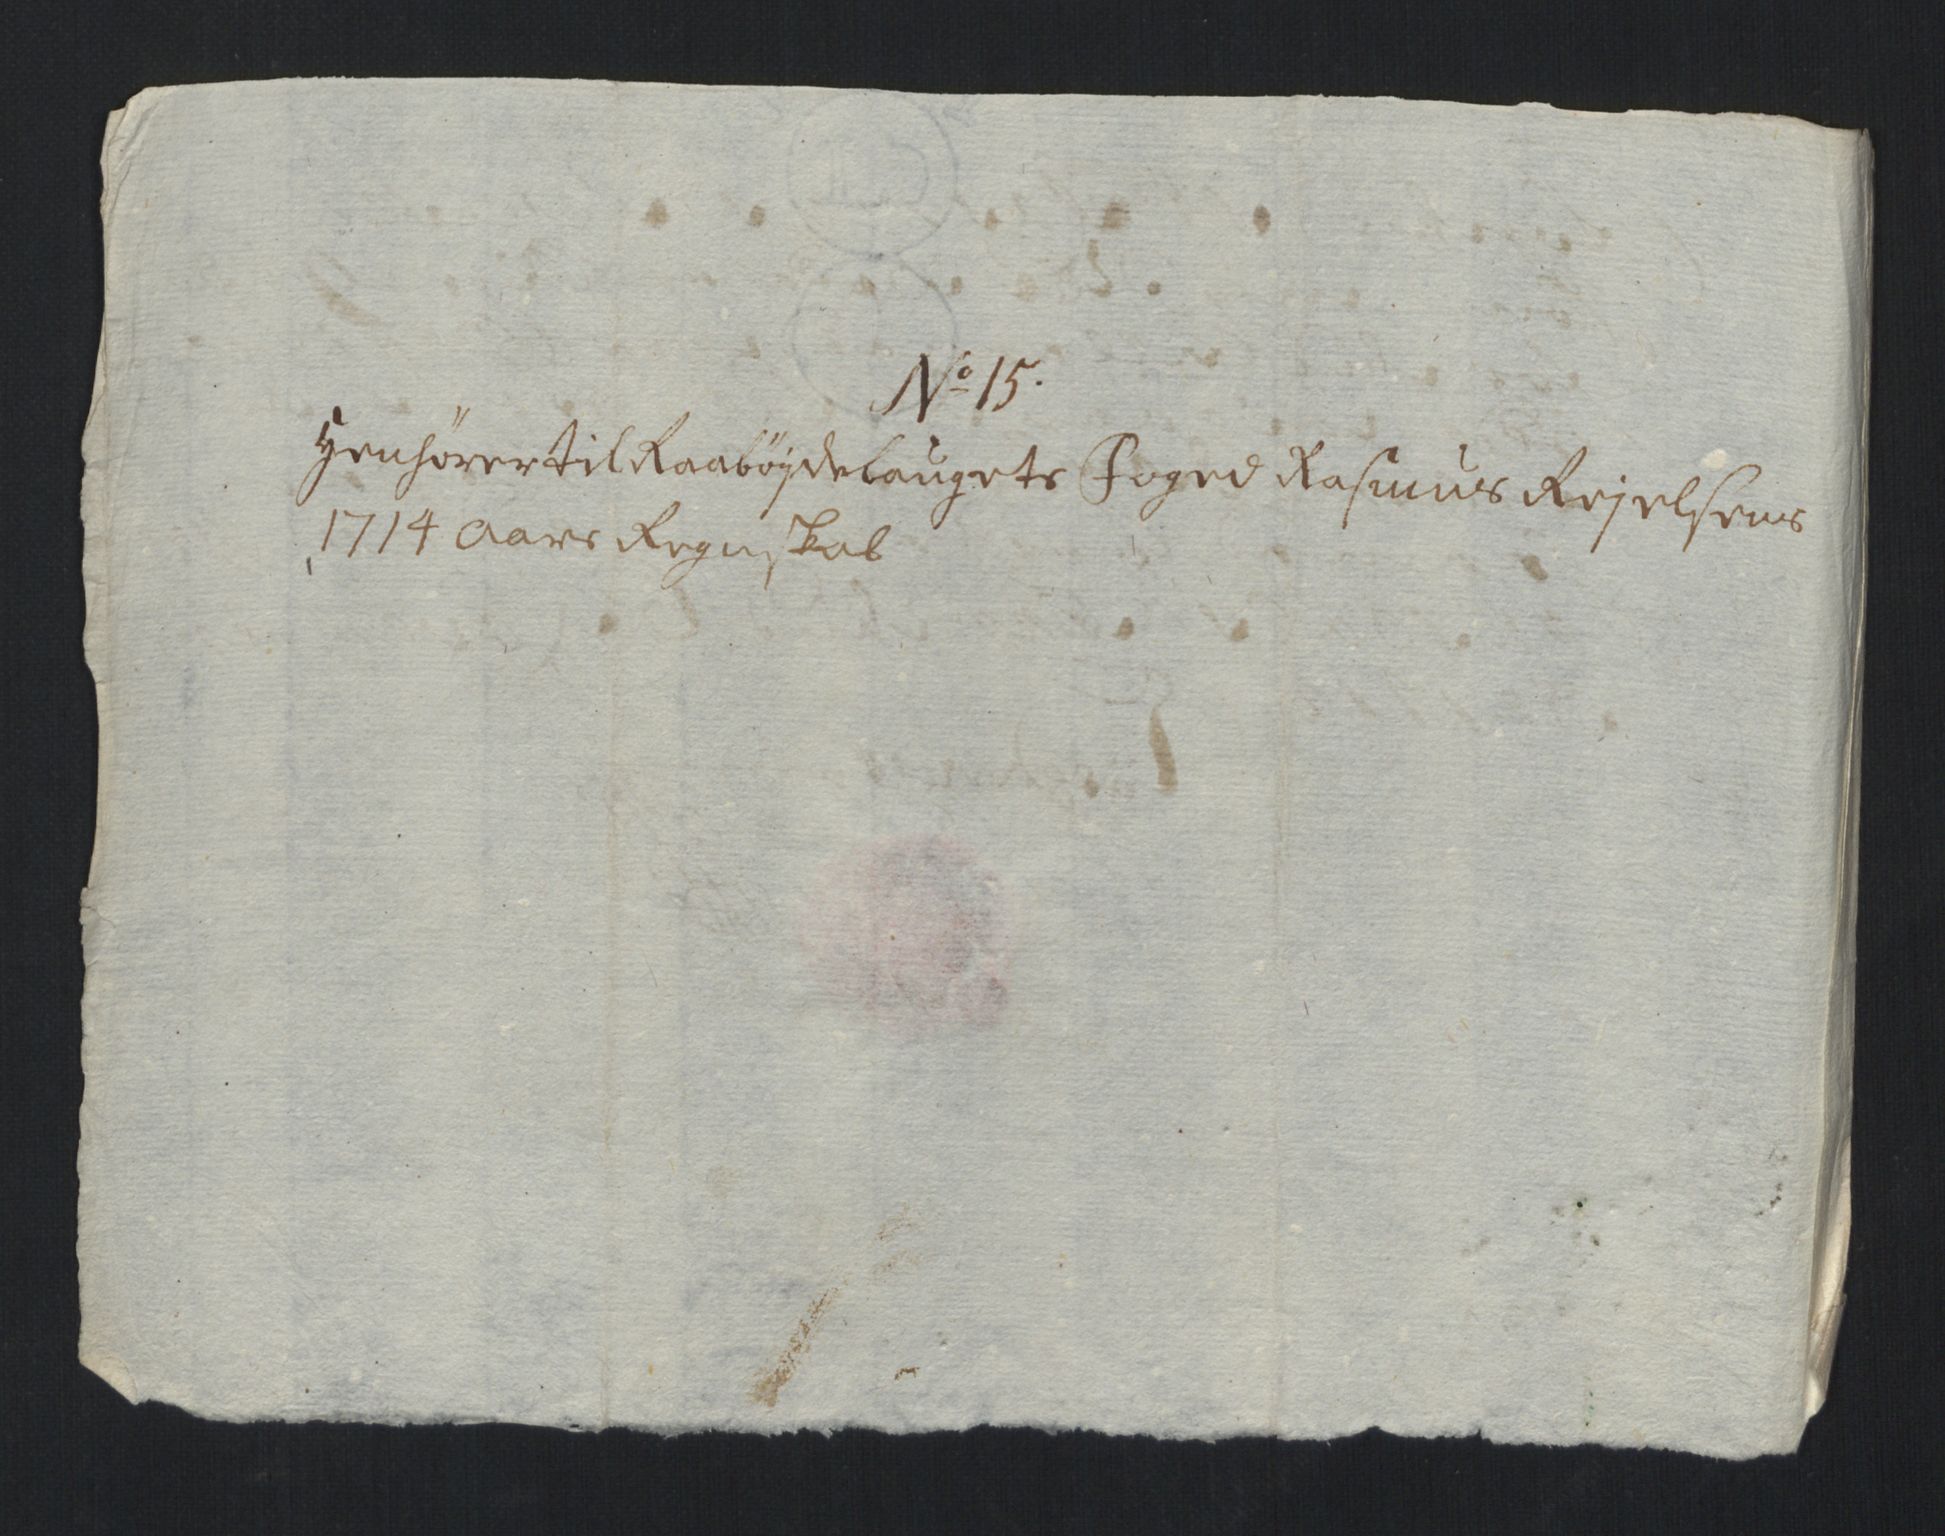 No 15.
Henhörer til Raaböjdelaugets Foged Rasmus Rejelsens
1714 Aars Regnskab